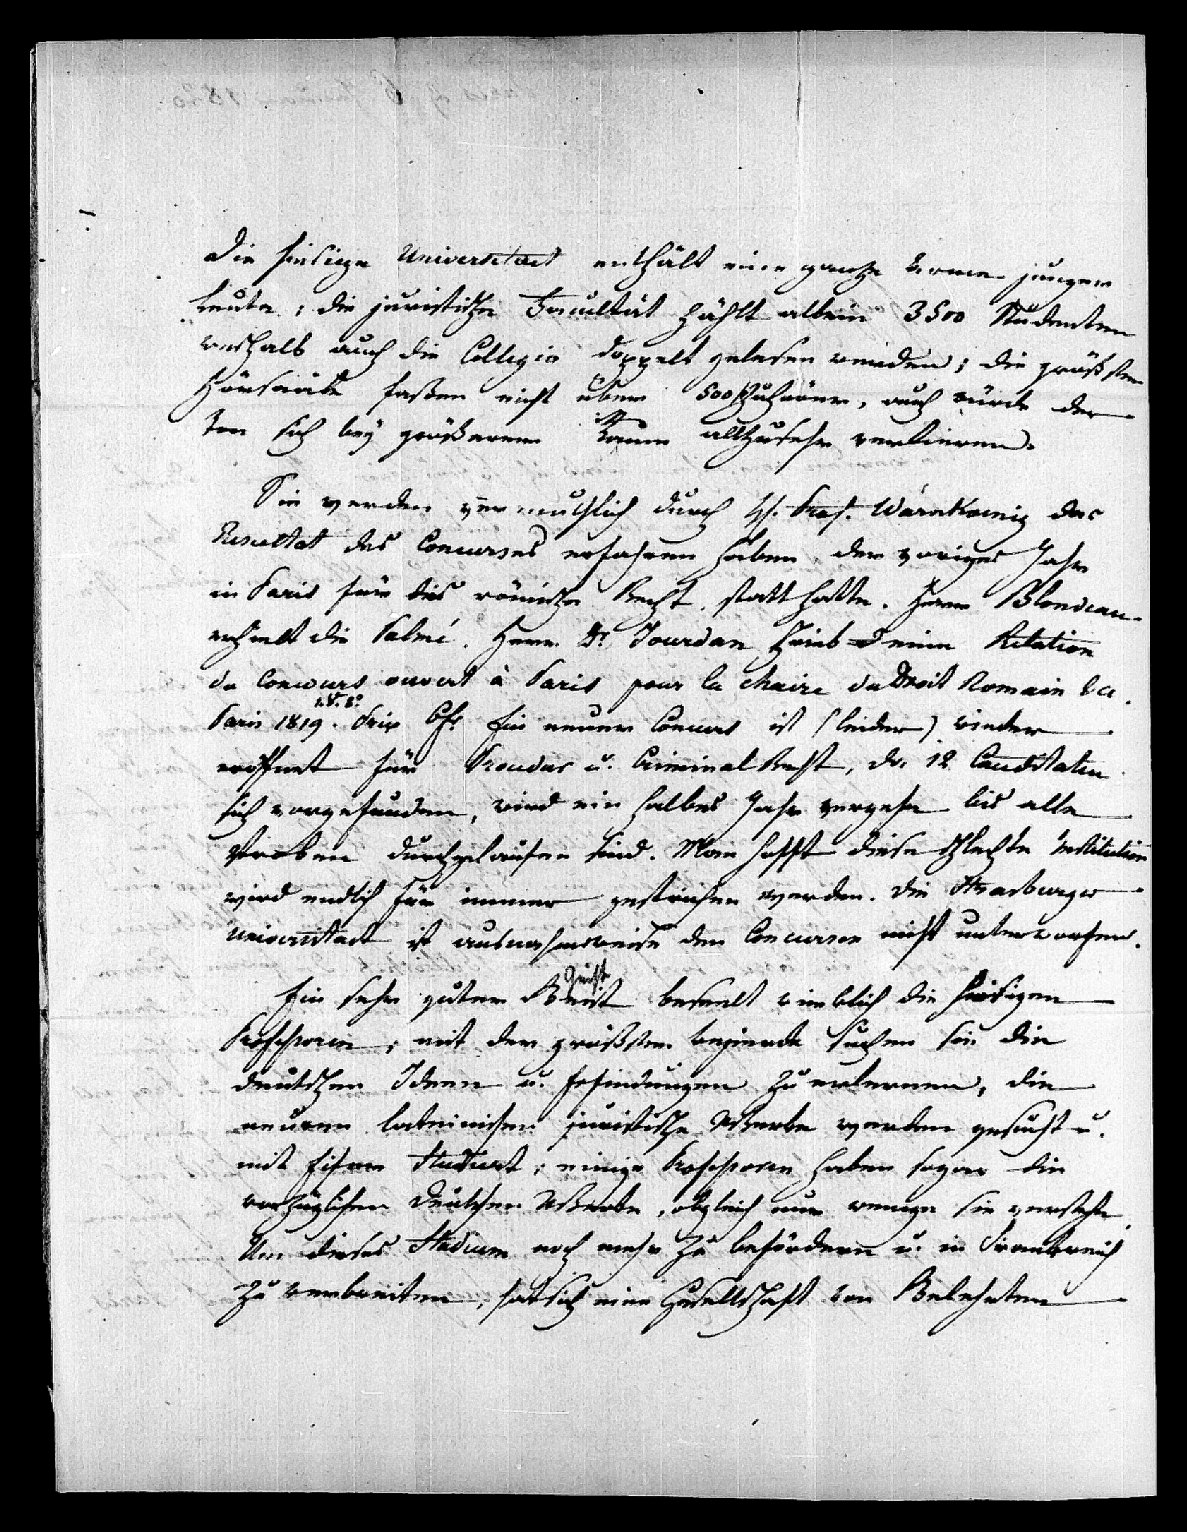 Die hiesige Universitaet enthält eine ganze Armee junger
Leute; die juristische Facultät zählt allein 3500 Studenten
weshalb auch die Collegia doppelt gelesen werden; die größten
Hörsääle faßen nicht über 500 Zuhörer, auch würde der
Ton sich bey größerem Raum allzusehr verlieren.
Sie werden vermuthlich durch H. Prof. Warnkoenig das
Resultat des Concurses erfahren haben, der voriges Jahr
in Paris für das römische Recht statt hatte. Herr Blondeau
erhielt die Palme. Herr Dr Jourdan schrieb eine Relation
du Concours ouvert à Paris pour la chaire de Droit Romain &c.
Paris 1819. 1.V. 8° Prix 6fr. Ein neuer Concurs ist (leider) wieder
eröffnet für Procedur u. Criminal Recht, da 12 Candidaten
sich vorgefunden, wird ein halbes Jahr vergehn bis alle
Proben durchgelaufen sind. Man hofft diese schlechte Institution
wird endlich für immer gestrichen werden. Die Strasburger
Universitaet ist ausnahmsweise den Concursen nicht unterworfen.
Ein sehr guter Geist beseelt wircklich die hiesigen
Professoren; mit der größten Begierde suchen sie die
deutschen Ideen u. Erfindungen zu erlernen, die
neuern lateinischen juristischen Werke werden gesucht u.
mit Eifer studiert; einige Professoren haben sogar die
vorzüglichen deutschen Werke, obgleich nur wenige sie verstehn.
Um dieses Studium noch mehr zu befördern u. in Frankreich
zu verbreiten, hat sich eine Gesellschaft von Gelehrten